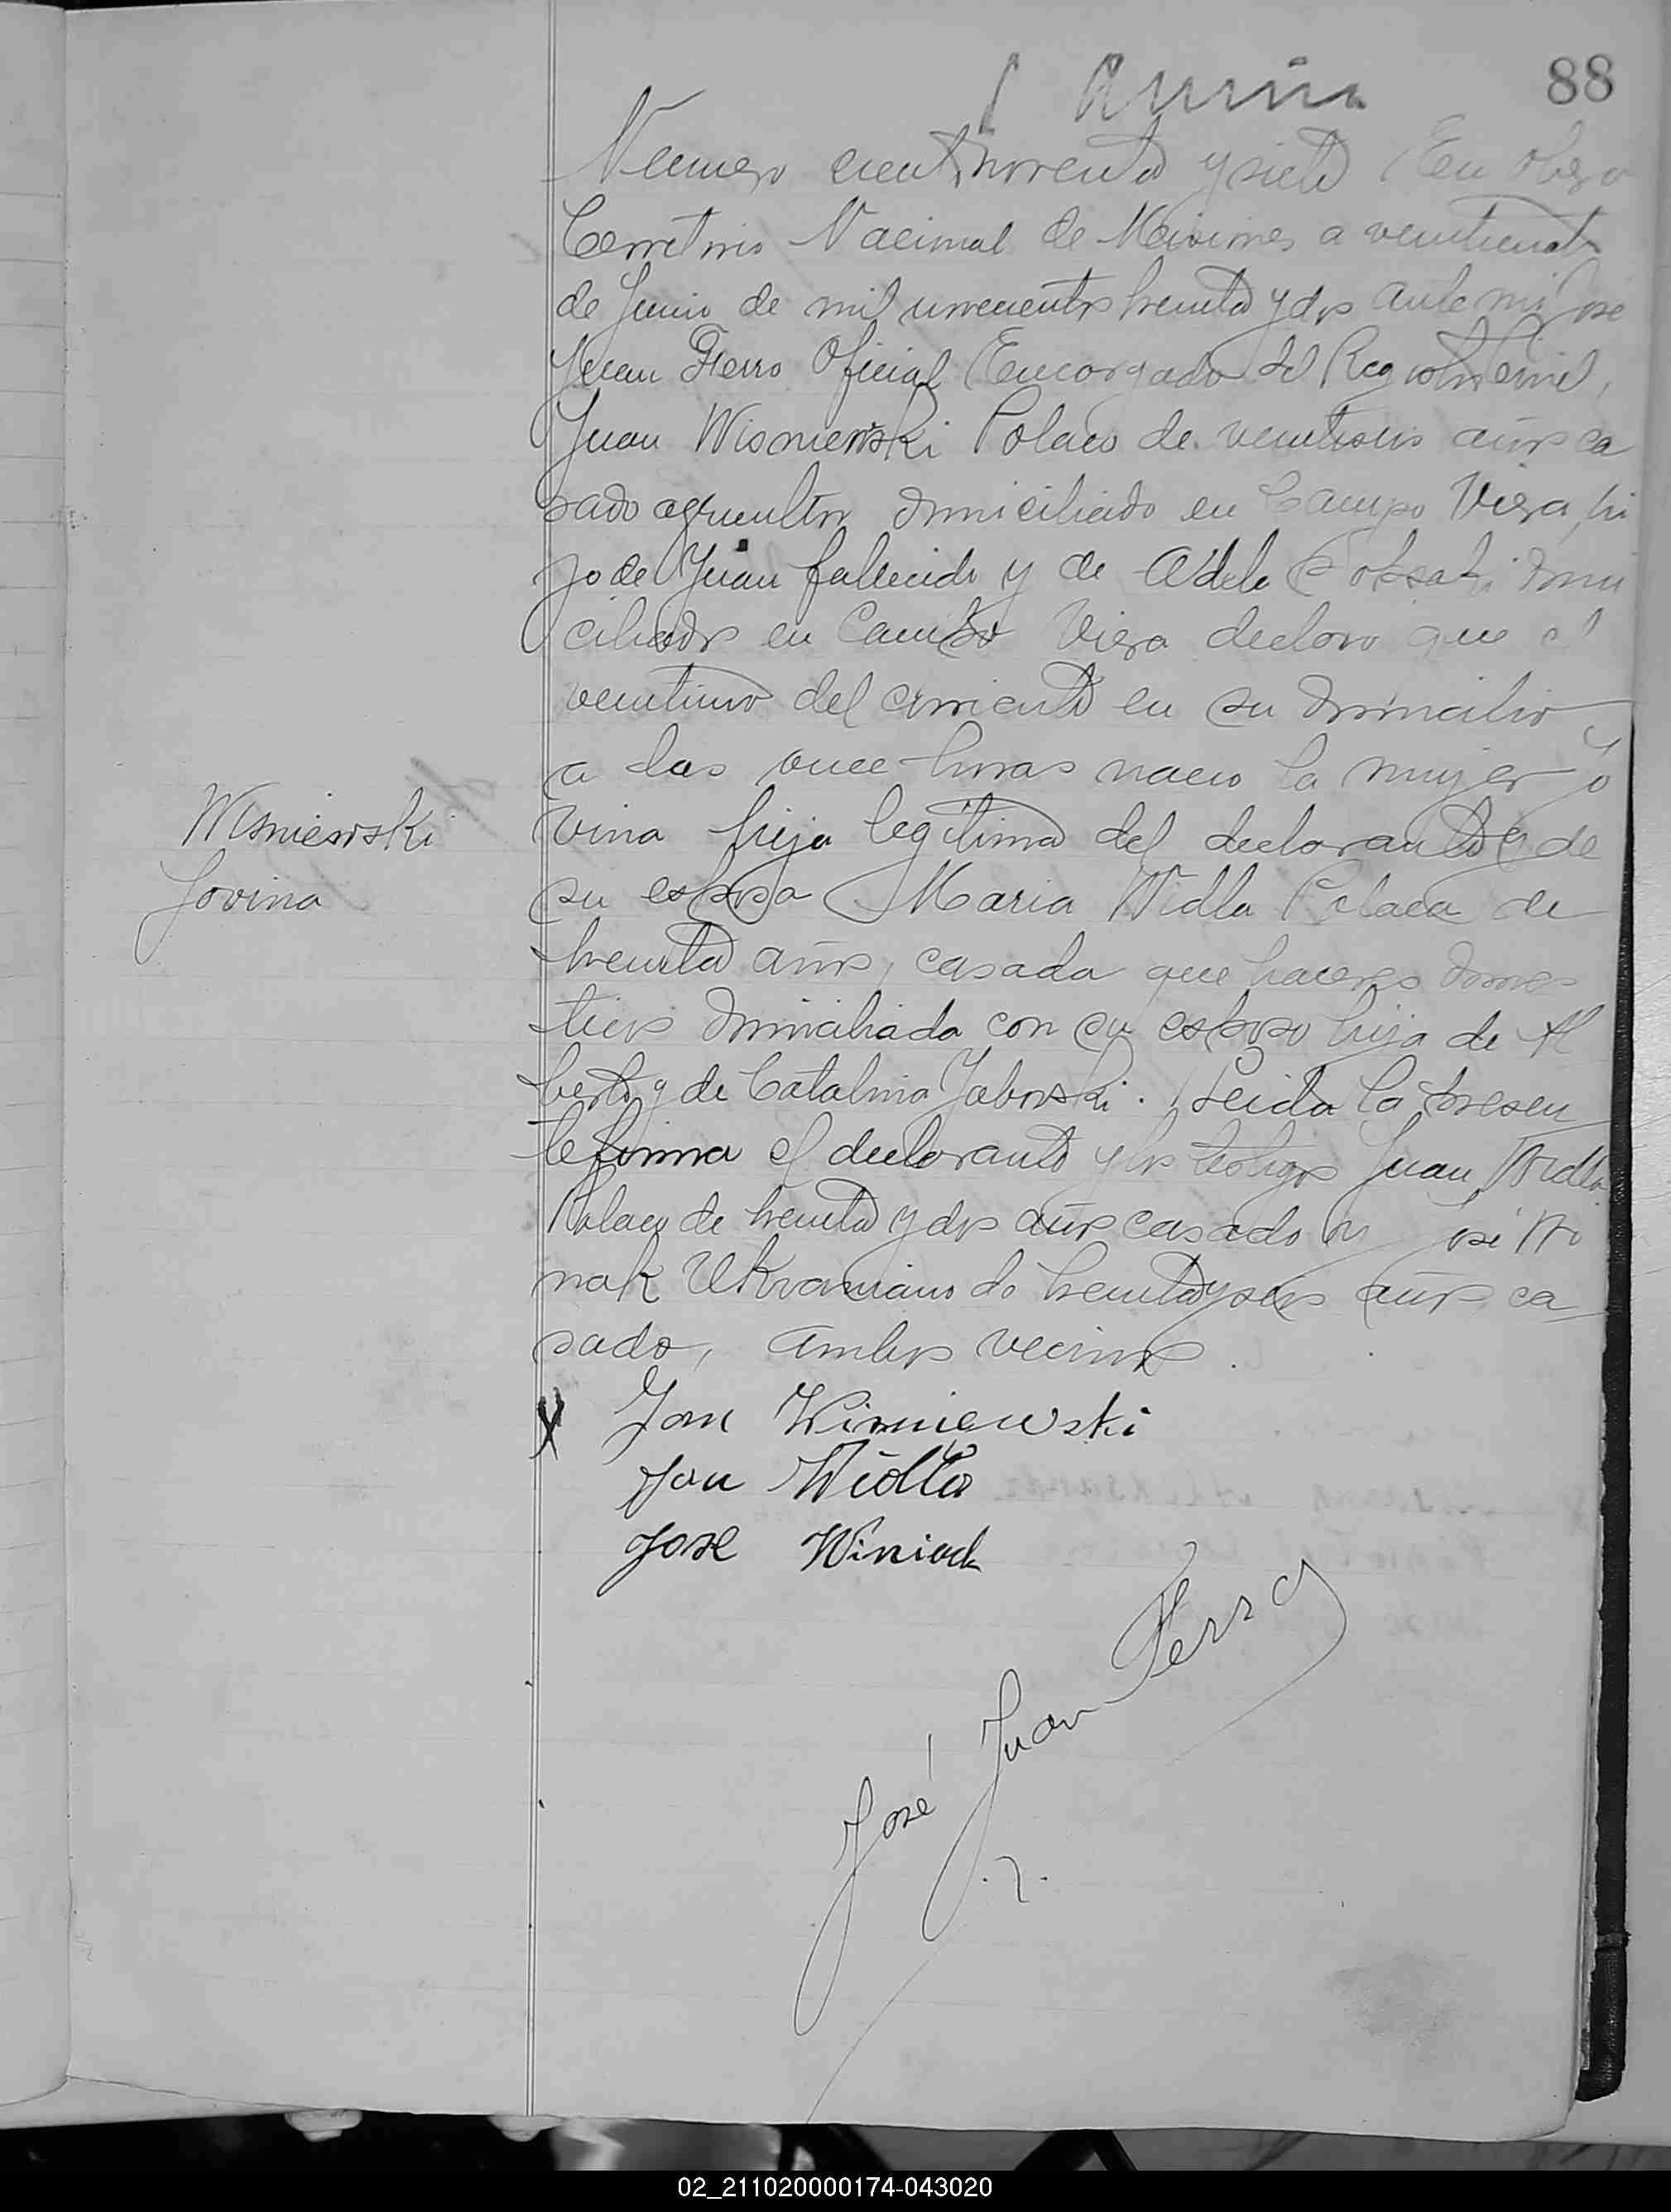 88
Numero ciento noventa y siete En Obera
Territorio Nacional de Misiones a veinticuatro
de Junio de mil novecientos treinta y dos ante mi José
Juan Fierro Oficial Encargado del Registro Civil,
Juan Wisniewski Polaco de veintiseis años ca
sado agricultor domiciliado en Campo Viera, hi
jo de Juan fallecido y de Adela domi
ciliados en Campo Viera declaro que el
veintiuno del corriente en su domicilio
a las once horas nacio la mujer Jo
Wisniewski
Jovina
vina hija legitima del declarante y de
su esposa Maria Widla Polaca de
treinta años, casada que haceres domes
ticos domiciliada con su esposo hija de Al
berto y de Catalina Jaborski. Leida la presen
te firma el declarante y los testigos Juan Widla
Polaco de treinta y dos años casado y José Wi
nak Ukraniano de treinta y seis años ca
sado, ambos vecinos.
X Jan Wisniewski
Jan Widła
Jose Winiack
José Juan Fierro
02_211020000174-043020